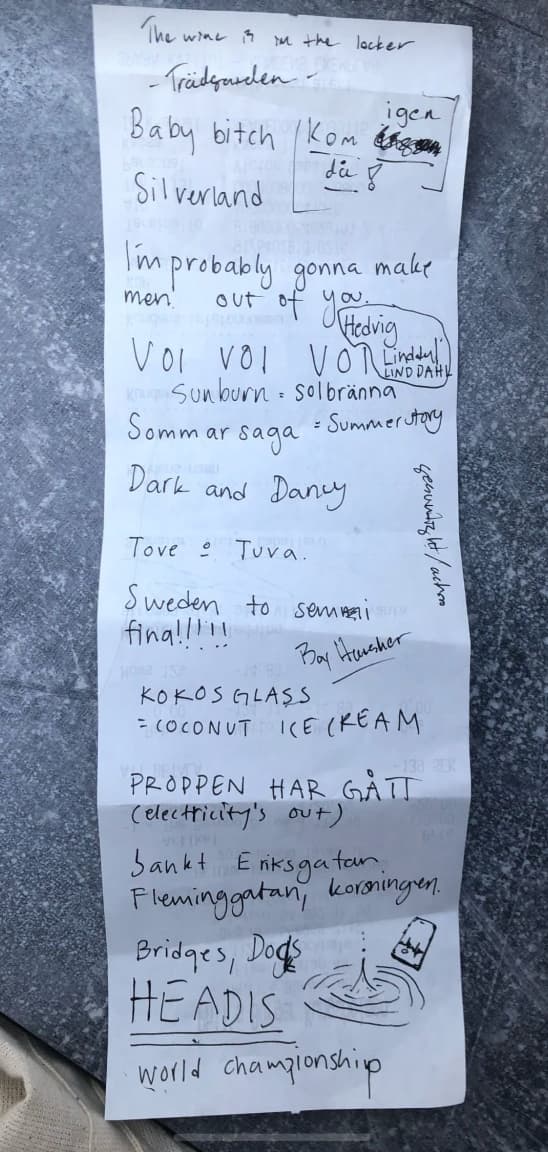 The wine is in the locker
- Trädgården -
Baby bitch
Kom igen
då!
Silverland
I'm probably gonna make
men out of you.
Hedvig
Linddahl
LINDDAHL
VOI VOI VOI
Sunburn = solbränna
Sommarsaga = Summerstory
Dark and Dancy
Tove = Tuva.
Sweden to semi
final!!!!!
Boy Harsher
KOKOSGLASS
= COCONUT ICECREAM
PROPPEN HAR GÅTT
(electricity's out)
Sankt Eriksgatan
Fleminggatan, korsningen.
Bridges, Dogs
HEADIS
world championship